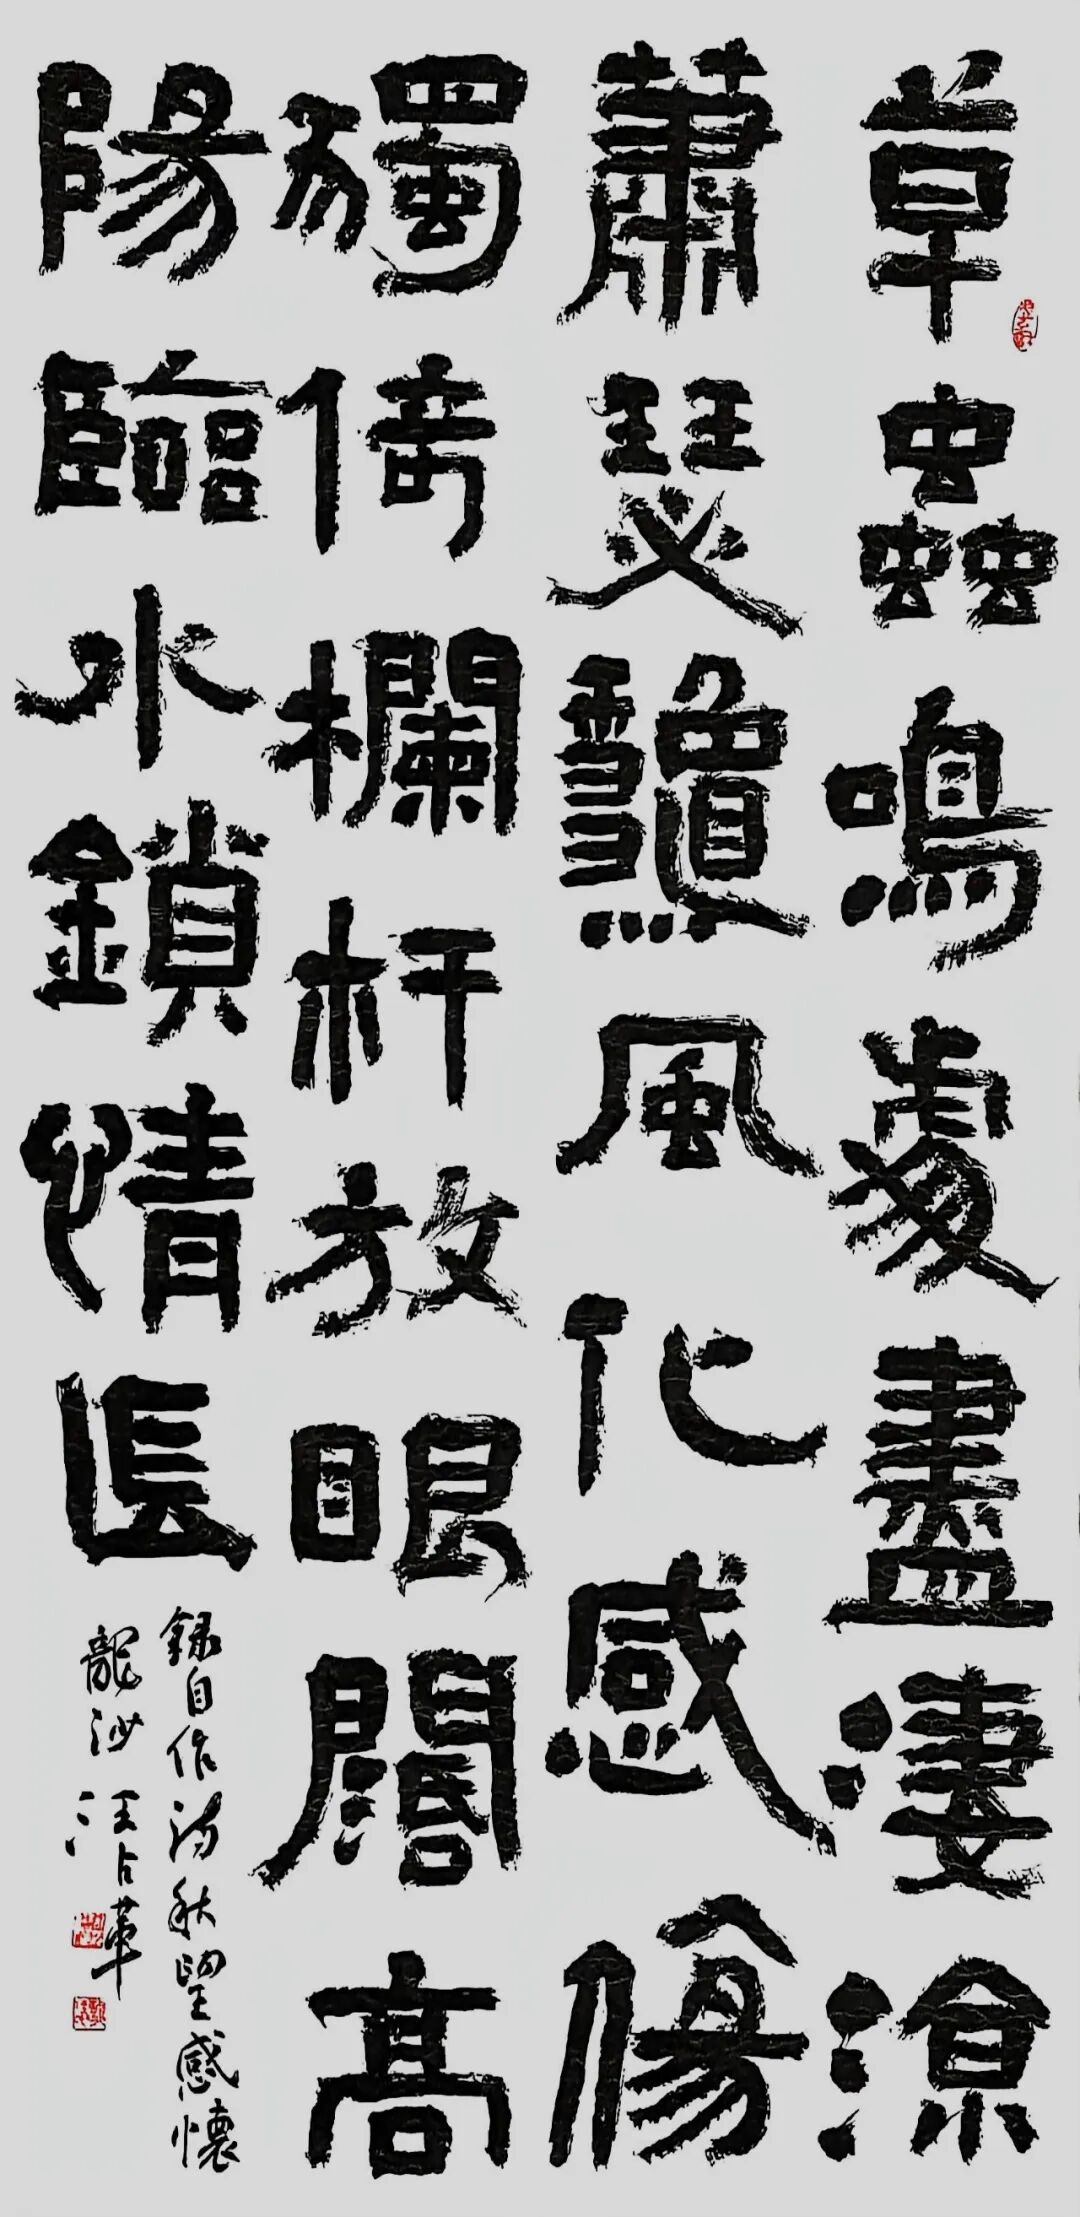 草蟲鳴處盡淒涼
蕭瑟龝風化感傷
獨倚欄杆放眼闊高
陽臨水鎖情長
錄自作詩秋望感懷
龍沙汪占革